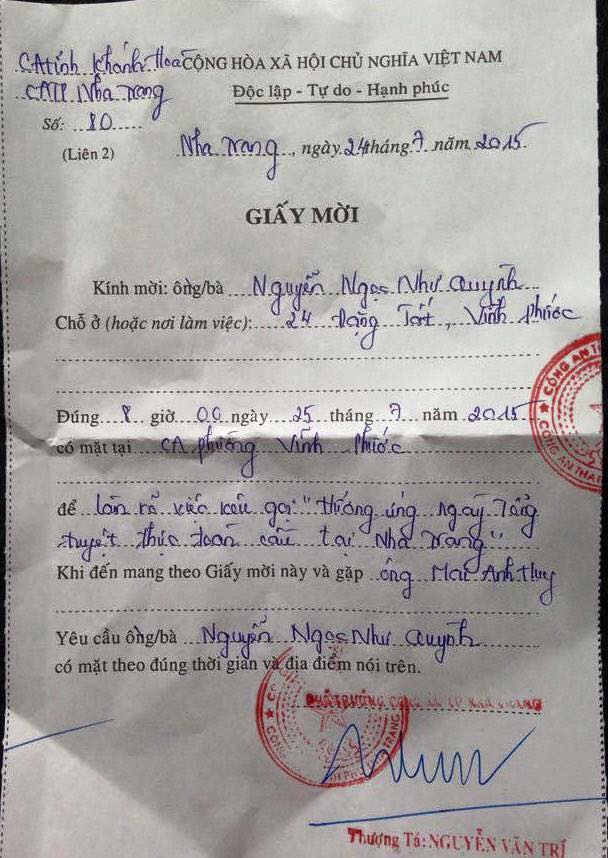 CA tỉnh Khánh Hoà CỘNG HÒA XÃ HỘI CHỦ NGHĨA VIỆT NAM
CATP Nha Trang Độc lập - Tự do - Hạnh phúc
Số: 80
(Liên 2) Nha Trang, ngày 24 tháng 7 năm 2015
GIẤY MỜI
Kính mời: ông/bà Nguyễn Ngọc Như Quỳnh
Chỗ ở (hoặc nơi làm việc): 24 Đặng Tất, Vĩnh Phước
Đúng 8 giờ 00 ngày 25 tháng 7 năm 2015
có mặt tại CA phường Vĩnh Phước
để làm rõ việc kêu gọi "Hưởng ứng ngày Tổng
tuyệt thực toàn cầu tại Nha Trang"
Khi đến mang theo Giấy mời này và gặp ông Mai Anh Thuy
Yêu cầu ông/bà Nguyễn Ngọc Như Quỳnh
có mặt theo đúng thời gian và địa điểm nói trên.
PHÓ TRƯỞNG CÔNG AN TP NHA TRANG
Thượng Tá: NGUYỄN VĂN TRÍ